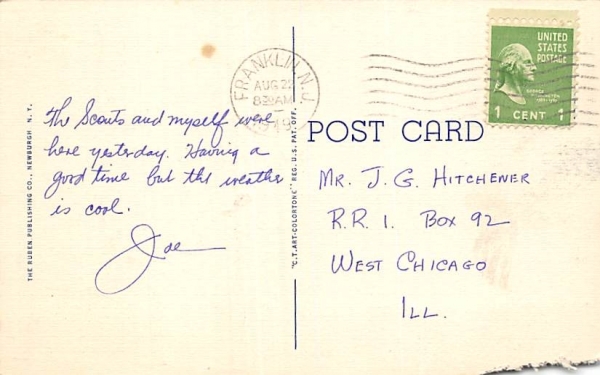 UNITED
STATES
POSTAGE
GEORGE
WASHINGTON
1 CENT 1
FRANKLIN N.J.
AUG
8 AM
The Scouts and myself were
here yesterday. Having a
good time but the weather
is cool.
Joe
POST CARD
MR. J. G. HITCHENER
R.R. 1. BOX 92
WEST CHICAGO
ILL.
THE RUBEN PUBLISHING CO., NEWBURGH, N. Y.
"C.T. ART-COLORTONE" REG. U.S. PAT. OFF.